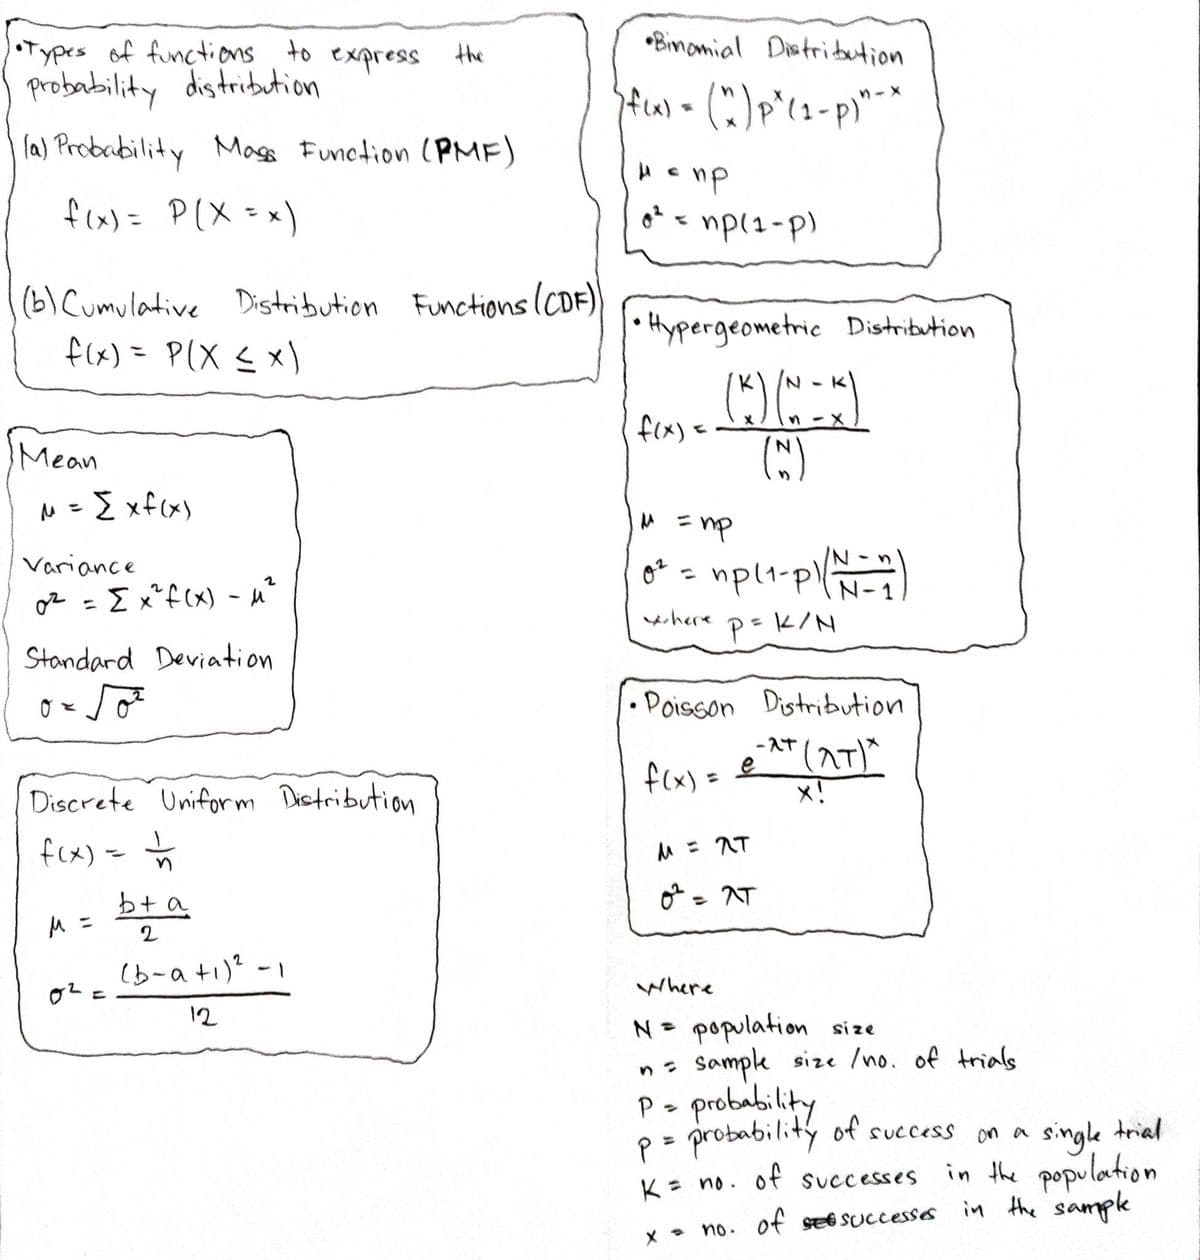 •Types of functions to express the
probability distribution
(a) Probability Mass Function (PMF)
f(x) = P(X = x)
(b) Cumulative Distribution Functions (CDF)
f(x) = P(X ≤ x)
Mean
μ = Σ xf(x)
Variance
σ² = Σ x²f(x) - μ²
Standard Deviation
σ = √σ²
Discrete Uniform Distribution
f(x) = 1/n
μ = (b+a)/2
σ² = ((b-a+1)² - 1)/12
•Binomial Distribution
f(x) = (n x) pˣ(1-p)ⁿ⁻ˣ
μ = np
σ² = np(1-p)
• Hypergeometric Distribution
f(x) = (K x)(N-K n-x)/(N n)
μ = np
σ² = np(1-p)((N-n)/(N-1))
where p = K/N
• Poisson Distribution
f(x) = e^(-λT) (λT)ˣ / x!
μ = λT
σ² = λT
Where
N = population size
n = sample size /no. of trials
P = probability
p = probability of success on a single trial
K = no. of successes in the population
x = no. of successes in the sample